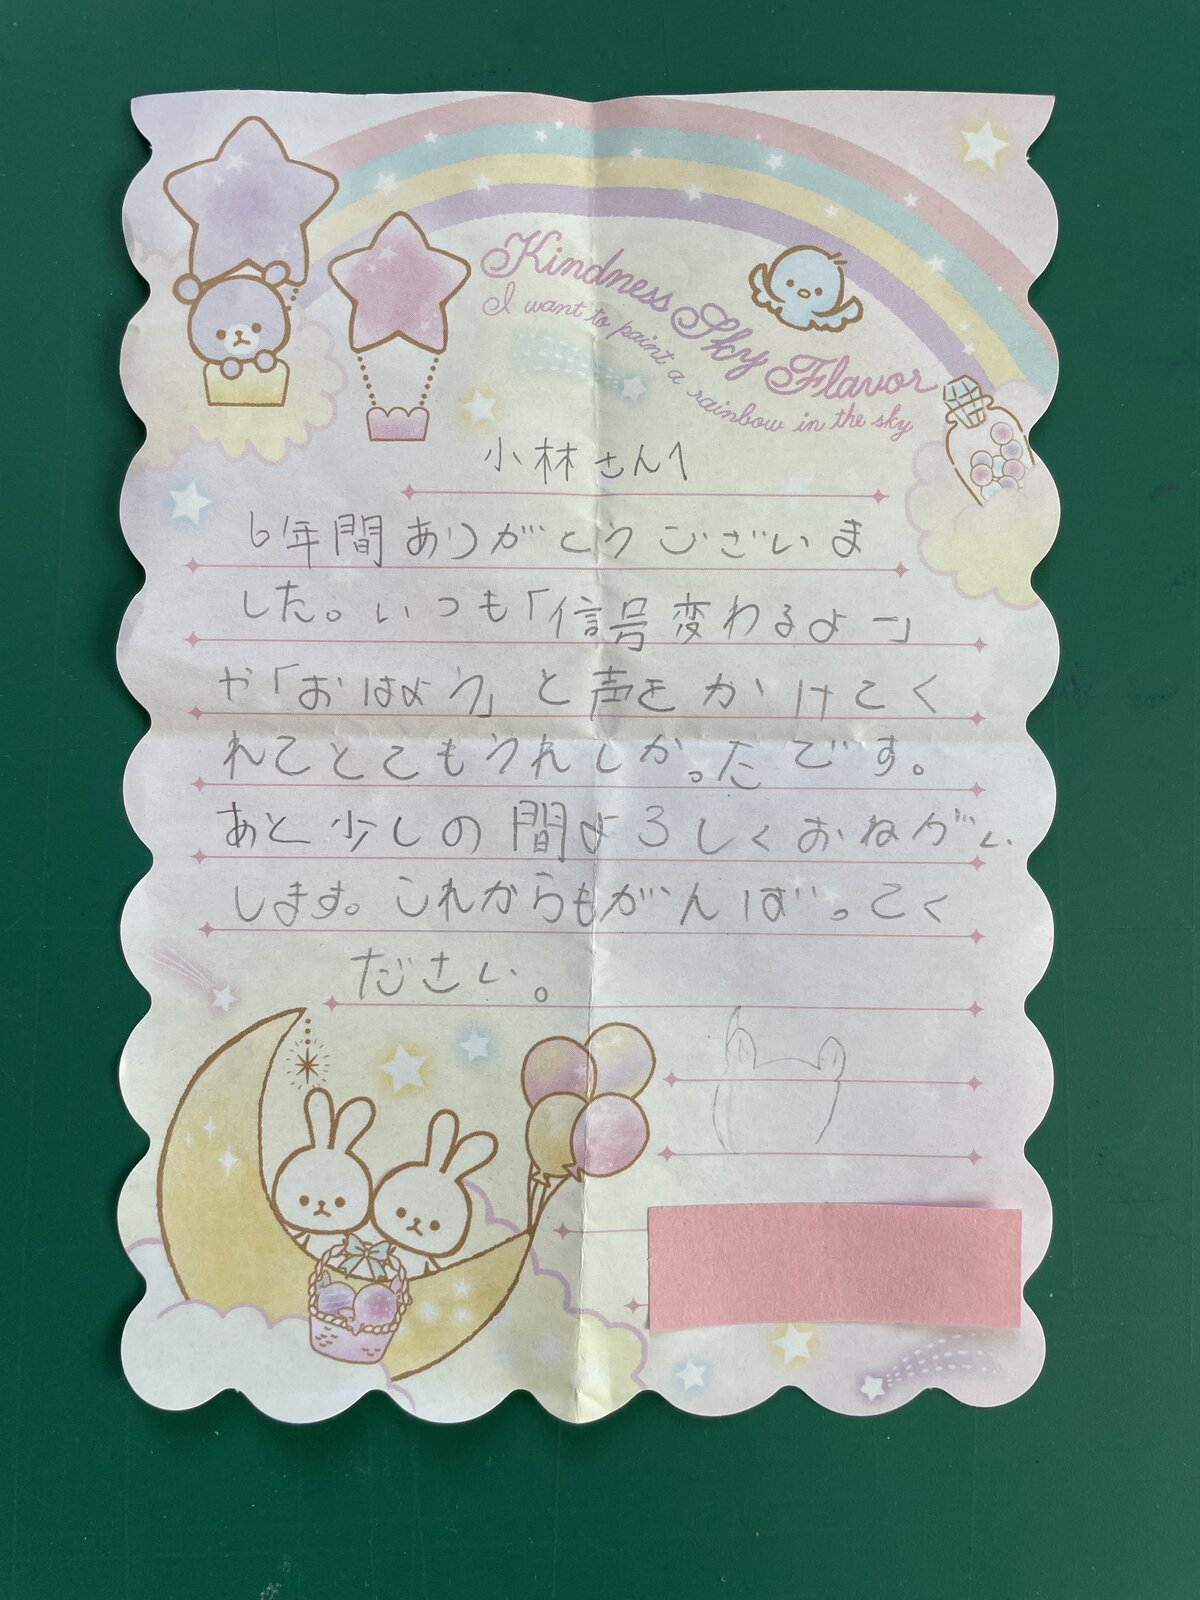 Kindness Sky Flavor
I want to paint a rainbow in the sky
小林さんへ
6年間ありがとうございま
した。いつも「信号変わるよー」
や「おはよう」と声をかけてく
れてとてもうれしかっだです。
あと少しの間よろしくおねがい
します。これからもがんばってく
ださい。